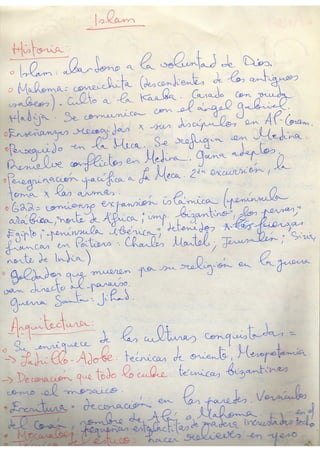 Islam
Historia
• Islam: abandono a la voluntad de Dios.
• Mahoma: coreichita (descendientes de los antiguos
). Culto a la Kaaba. Casado con viuda
Hadija. Se comunica con el ángel Gabriel.
• Enseñanzas recogidas x sus discípulos en Al-Coran.
• Perseguido en la Meca. Se refugia en Medina.
Resuelve conflictos en Medina. Gana adeptos.
• Peregrinación pacífica a La Meca. 2ª excursión, la
toma x las armas.
• 622: comienzo expansión islámica (península
arábica, norte de África; imp. bizantino, los persas,
Egipto; península ibérica; detenidos x las fuerzas
francas en Poitiers: Charles Martel, Jerusalen; Siria,
norte de India)
• Soldados que mueren por su religión en la guerra
van directo al paraíso.
Guerra Santa: Jihad.
Arquitectura:
• Se enriquece de las culturas conquistadas: =
→ Ladrillo-Adobe: técnicas de oriente, Mesopotamia
→ Decoración que todo lo cubre: técnicas bizantinas
como el mosaico.
• Escritura = decoración en las paredes. Versículos
del Corán, nombre de Alá o Mahoma. en el
• Mocárabes: pequeñas estalactitas de madera incrustadas techo
estuco: hacer relieves en yeso